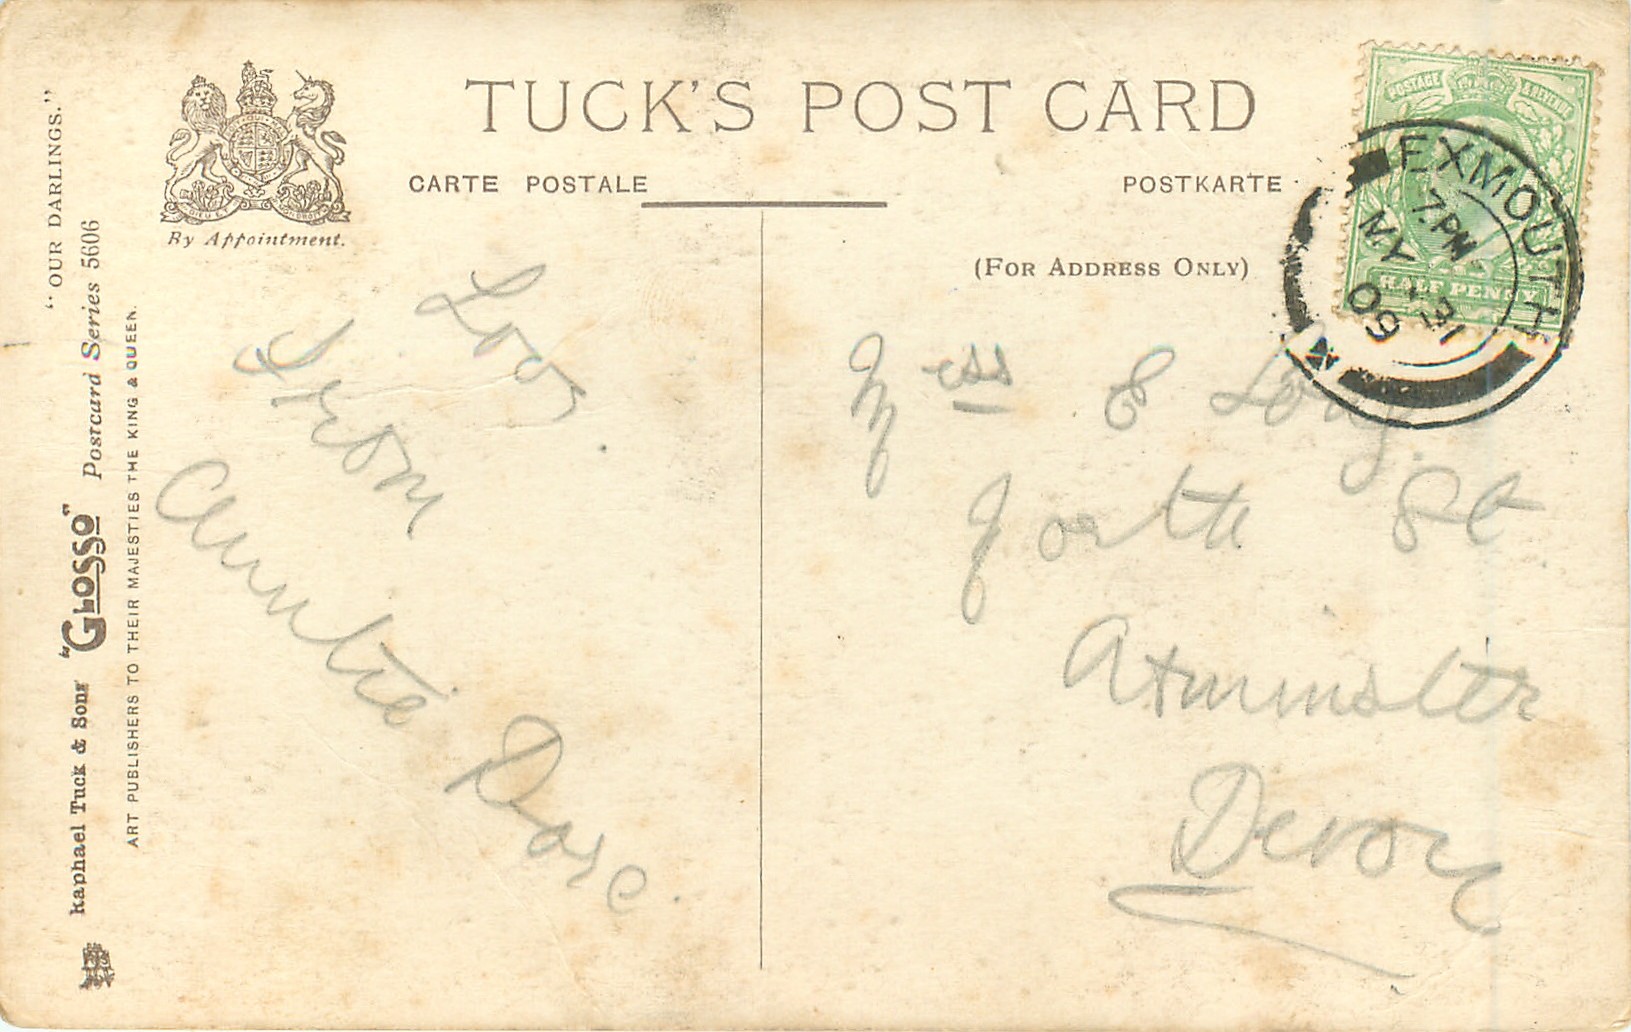 TUCK'S POST CARD
CARTE POSTALE
POSTKARTE
By Appointment.
DIEU ET MON DROIT
(FOR ADDRESS ONLY)
"OUR DARLINGS."
Raphael Tuck & Sons' "GLOSSO" Postcard Series 5606
ART PUBLISHERS TO THEIR MAJESTIES THE KING & QUEEN.
POSTAGE & REVENUE
HALF PENNY
EXMOUTH
7.PM
MY 31
09
Love
from
Auntie
Miss E Long
North St
Axminster
Devon